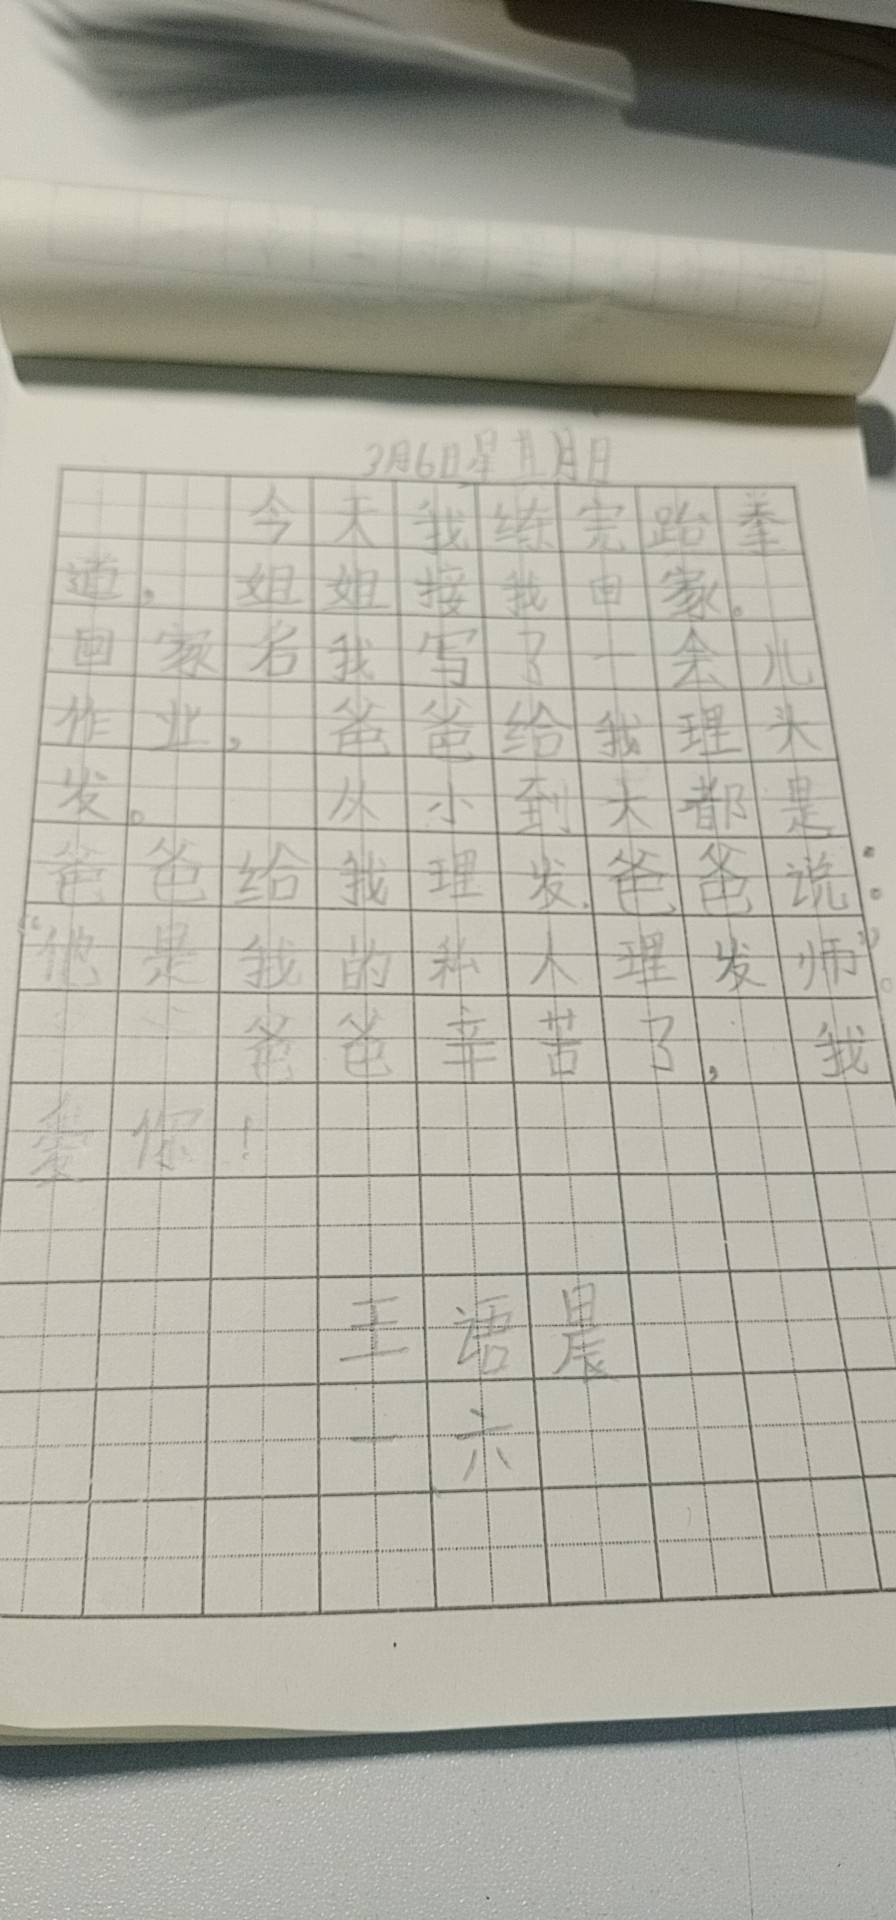 3月6日星其月日
今天我练完跆拳
道，姐姐接我回家。
回家名我写了一会儿
作业，爸爸给我理头
发。从小到大都是
爸爸给我理发.爸爸说：
“他是我的私人理发师”。
爸爸辛苦了，我
爱你！
王语晨
一六